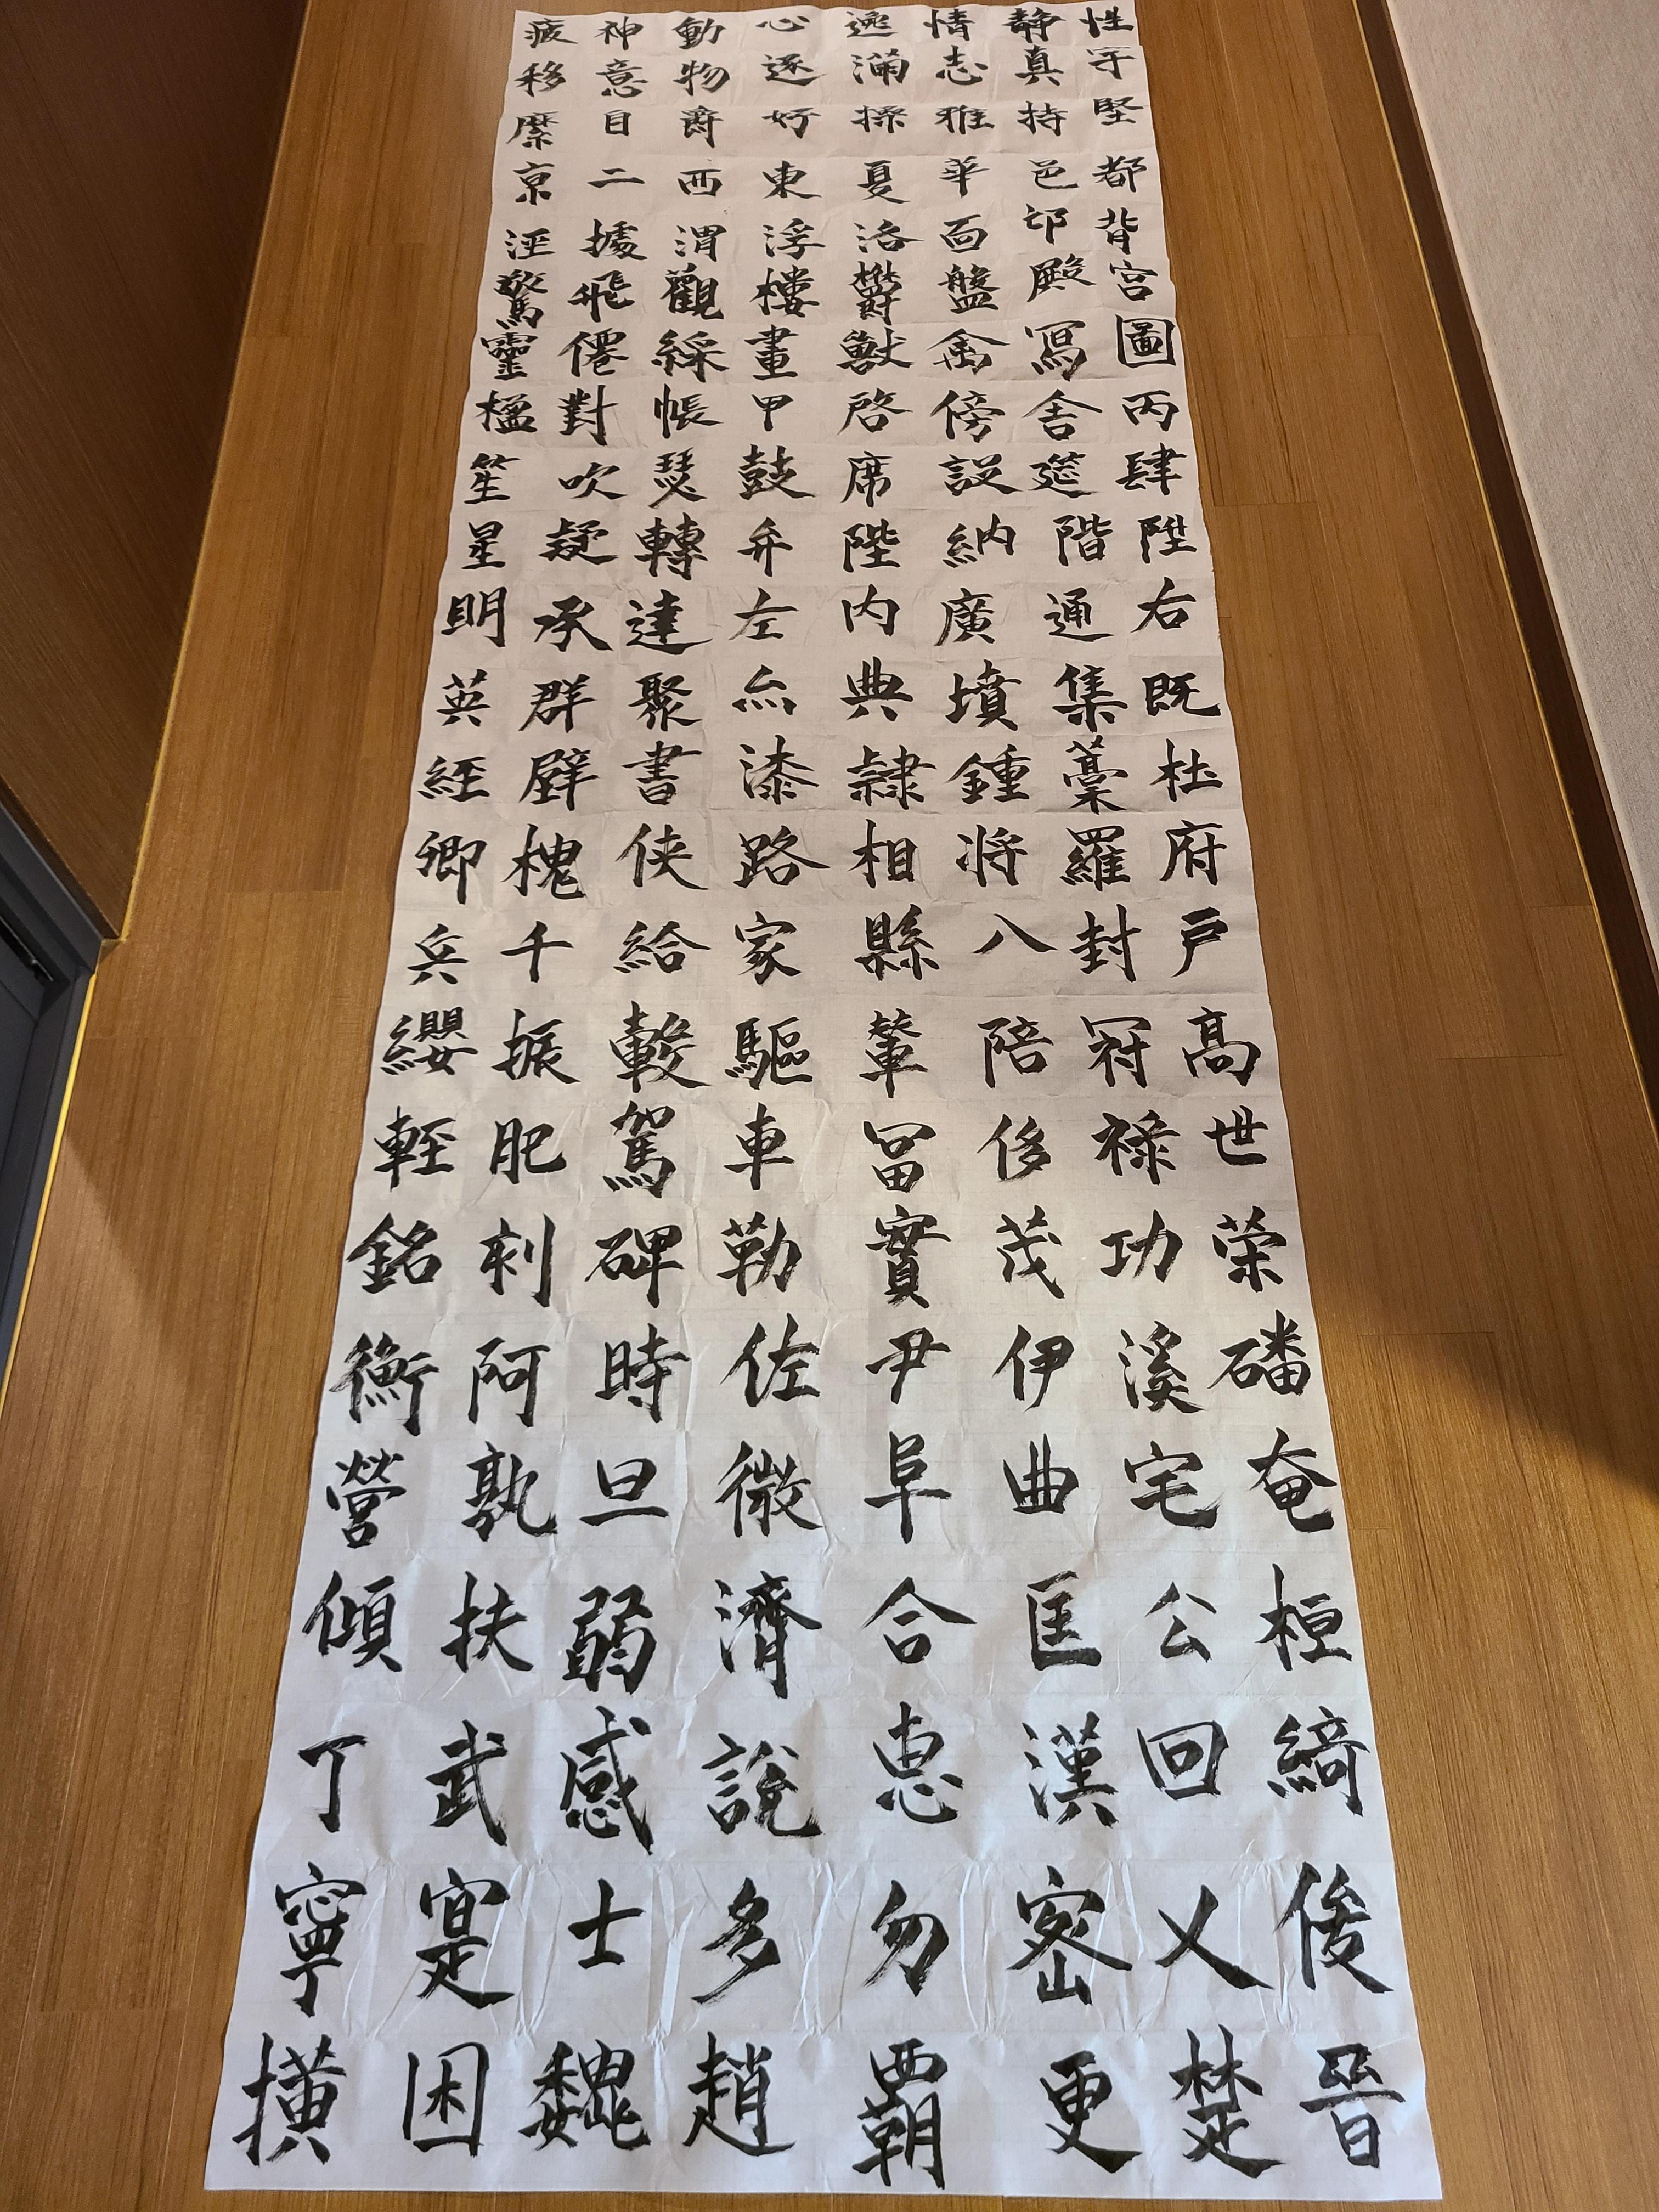 性静情逸心動神疲
守真志滿逐物意移
堅持雅操好爵自縻
都邑華夏東西二京
背邙面洛浮渭據涇
宮殿盤鬱樓觀飛驚
圖寫禽獸畫綵僊靈
丙舍傍啓甲帳對楹
肆筵設席鼓瑟吹笙
陞階納陛弁轉疑星
右通廣内左達承明
既集墳典亦聚群英
杜藁鍾隸漆書壁經
府羅将相路俠槐卿
戸封八縣家給千兵
高冠陪輦驅轂振纓
世禄侈富車駕肥輕
策功茂實勒碑刻銘
磻溪伊尹佐時阿衡
奄宅曲阜微旦孰營
桓公匡合濟弱扶傾
綺回漢惠說感武丁
俊乂密勿多士寔寧
晉楚更霸趙魏困横